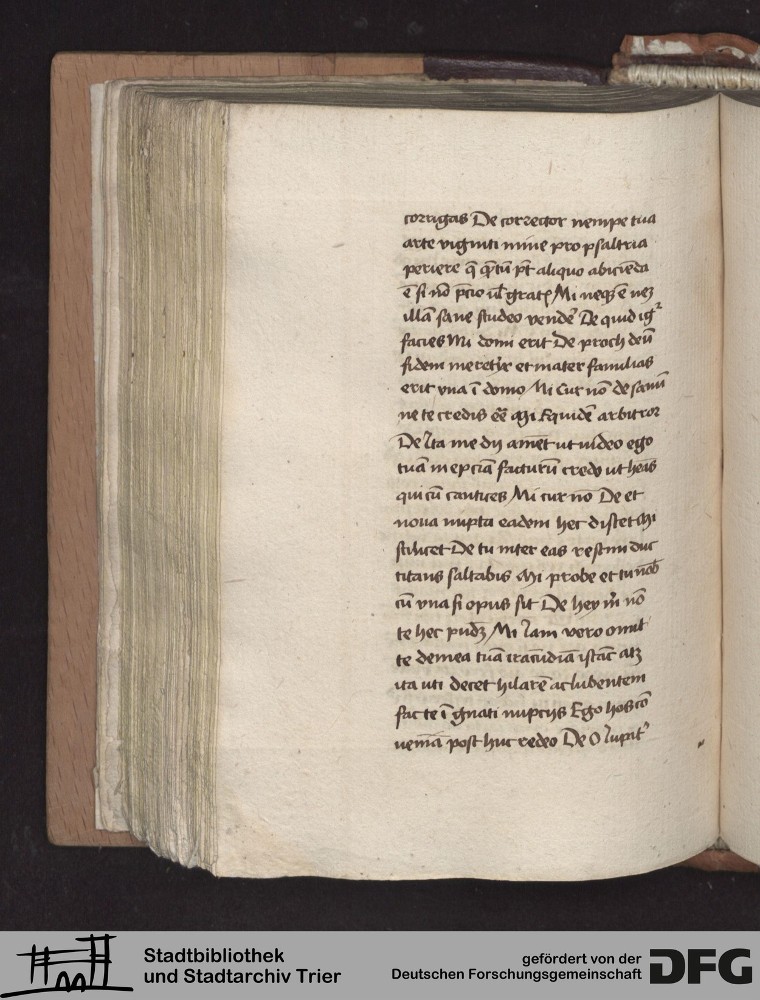 corrigas De corrector nempe tua
arte viginti mine pro psaltria
periere q̄ q̄ntū pt̄ aliquo abiciēda
ē si nō p̄cio ul̄ gratꝭ Mi neqꝫ ē neqꝫ
illā sane studeo vendē De quid igr̄
facies Mi domi erit De proch deū
fidem meretx̄ et mater familias
erit vna ī domo Mi Cur nō De sanū
ne te credis eē Mi Equidē arbitror
De Ita me dij amēt ut uideo ego
tuā inepciā facturū credo ut heās
qui cū cantites Mi cur nō De et
noua nupta eadem hec discet Mi
scilicet De tu inter eas restim duc
titans saltabis Mi probe et tu nob̄
cū vna si opus sit De hey m̄ nō
te hec pudꝫ Mi Iam vero omit
te demea tuā iracūdiā istāc atqꝫ
ita uti decet hilarē ac lubentem
fac te ī gnati nupcijs Ego hos cō
ueniā post huc redeo De O Iupit̄
Stadtbibliothek
und Stadtarchiv Trier
gefördert von der
Deutschen Forschungsgemeinschaft
DFG